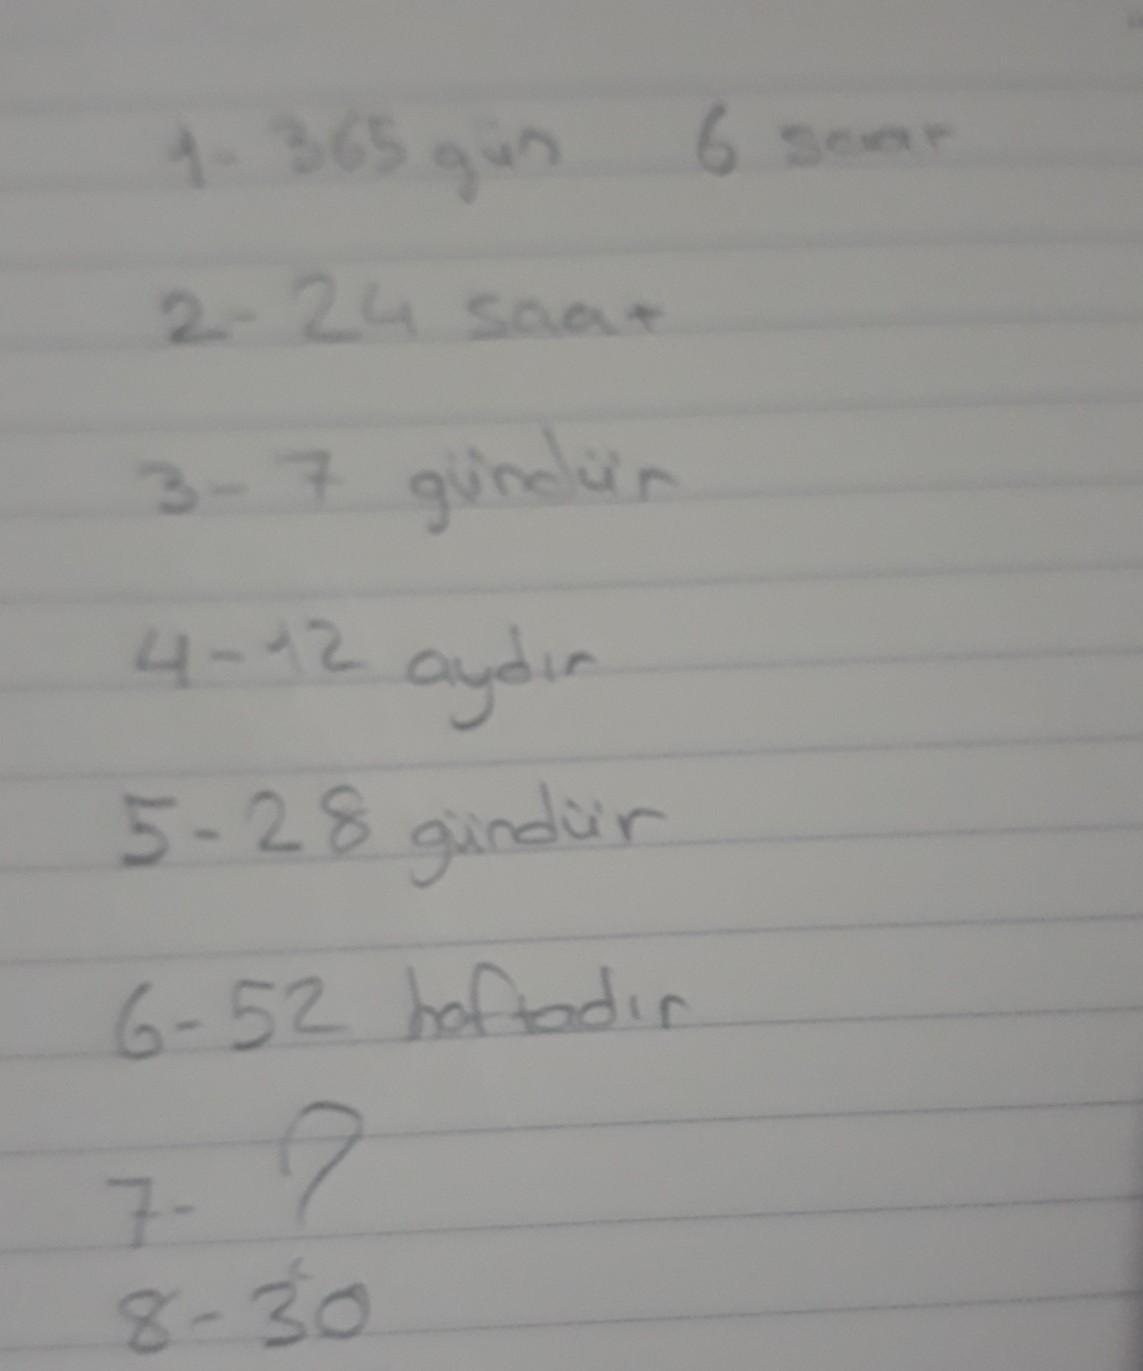 1- 365 gün 6 saat
2- 24 saat
3- 7 gündür
4-12 aydır
5-28 gündür
6-52 haftadır
7- ?
8-30